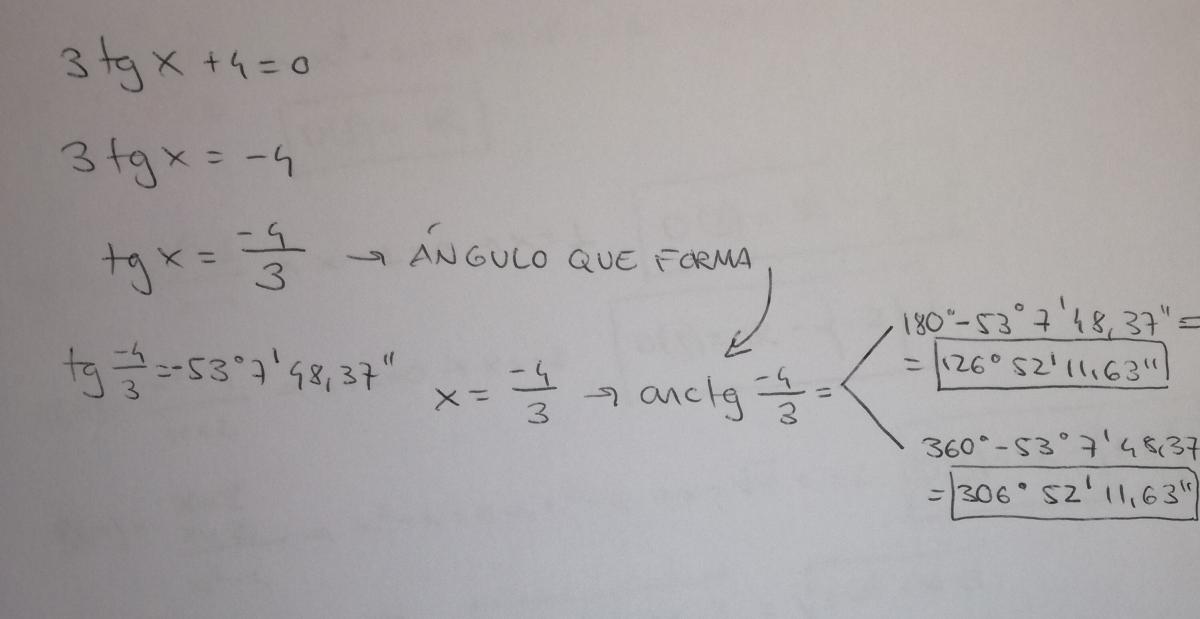 3 tg x + 4 = 0
3 tg x = -4
tg x = -4/3 → ÁNGULO QUE FORMA
tg -4/3 = -53° 7' 48,37"
x = -4/3 → arctg -4/3 =
180° - 53° 7' 48,37" =
= 126° 52' 11,63"
360° - 53° 7' 48,37
= 306° 52' 11,63"